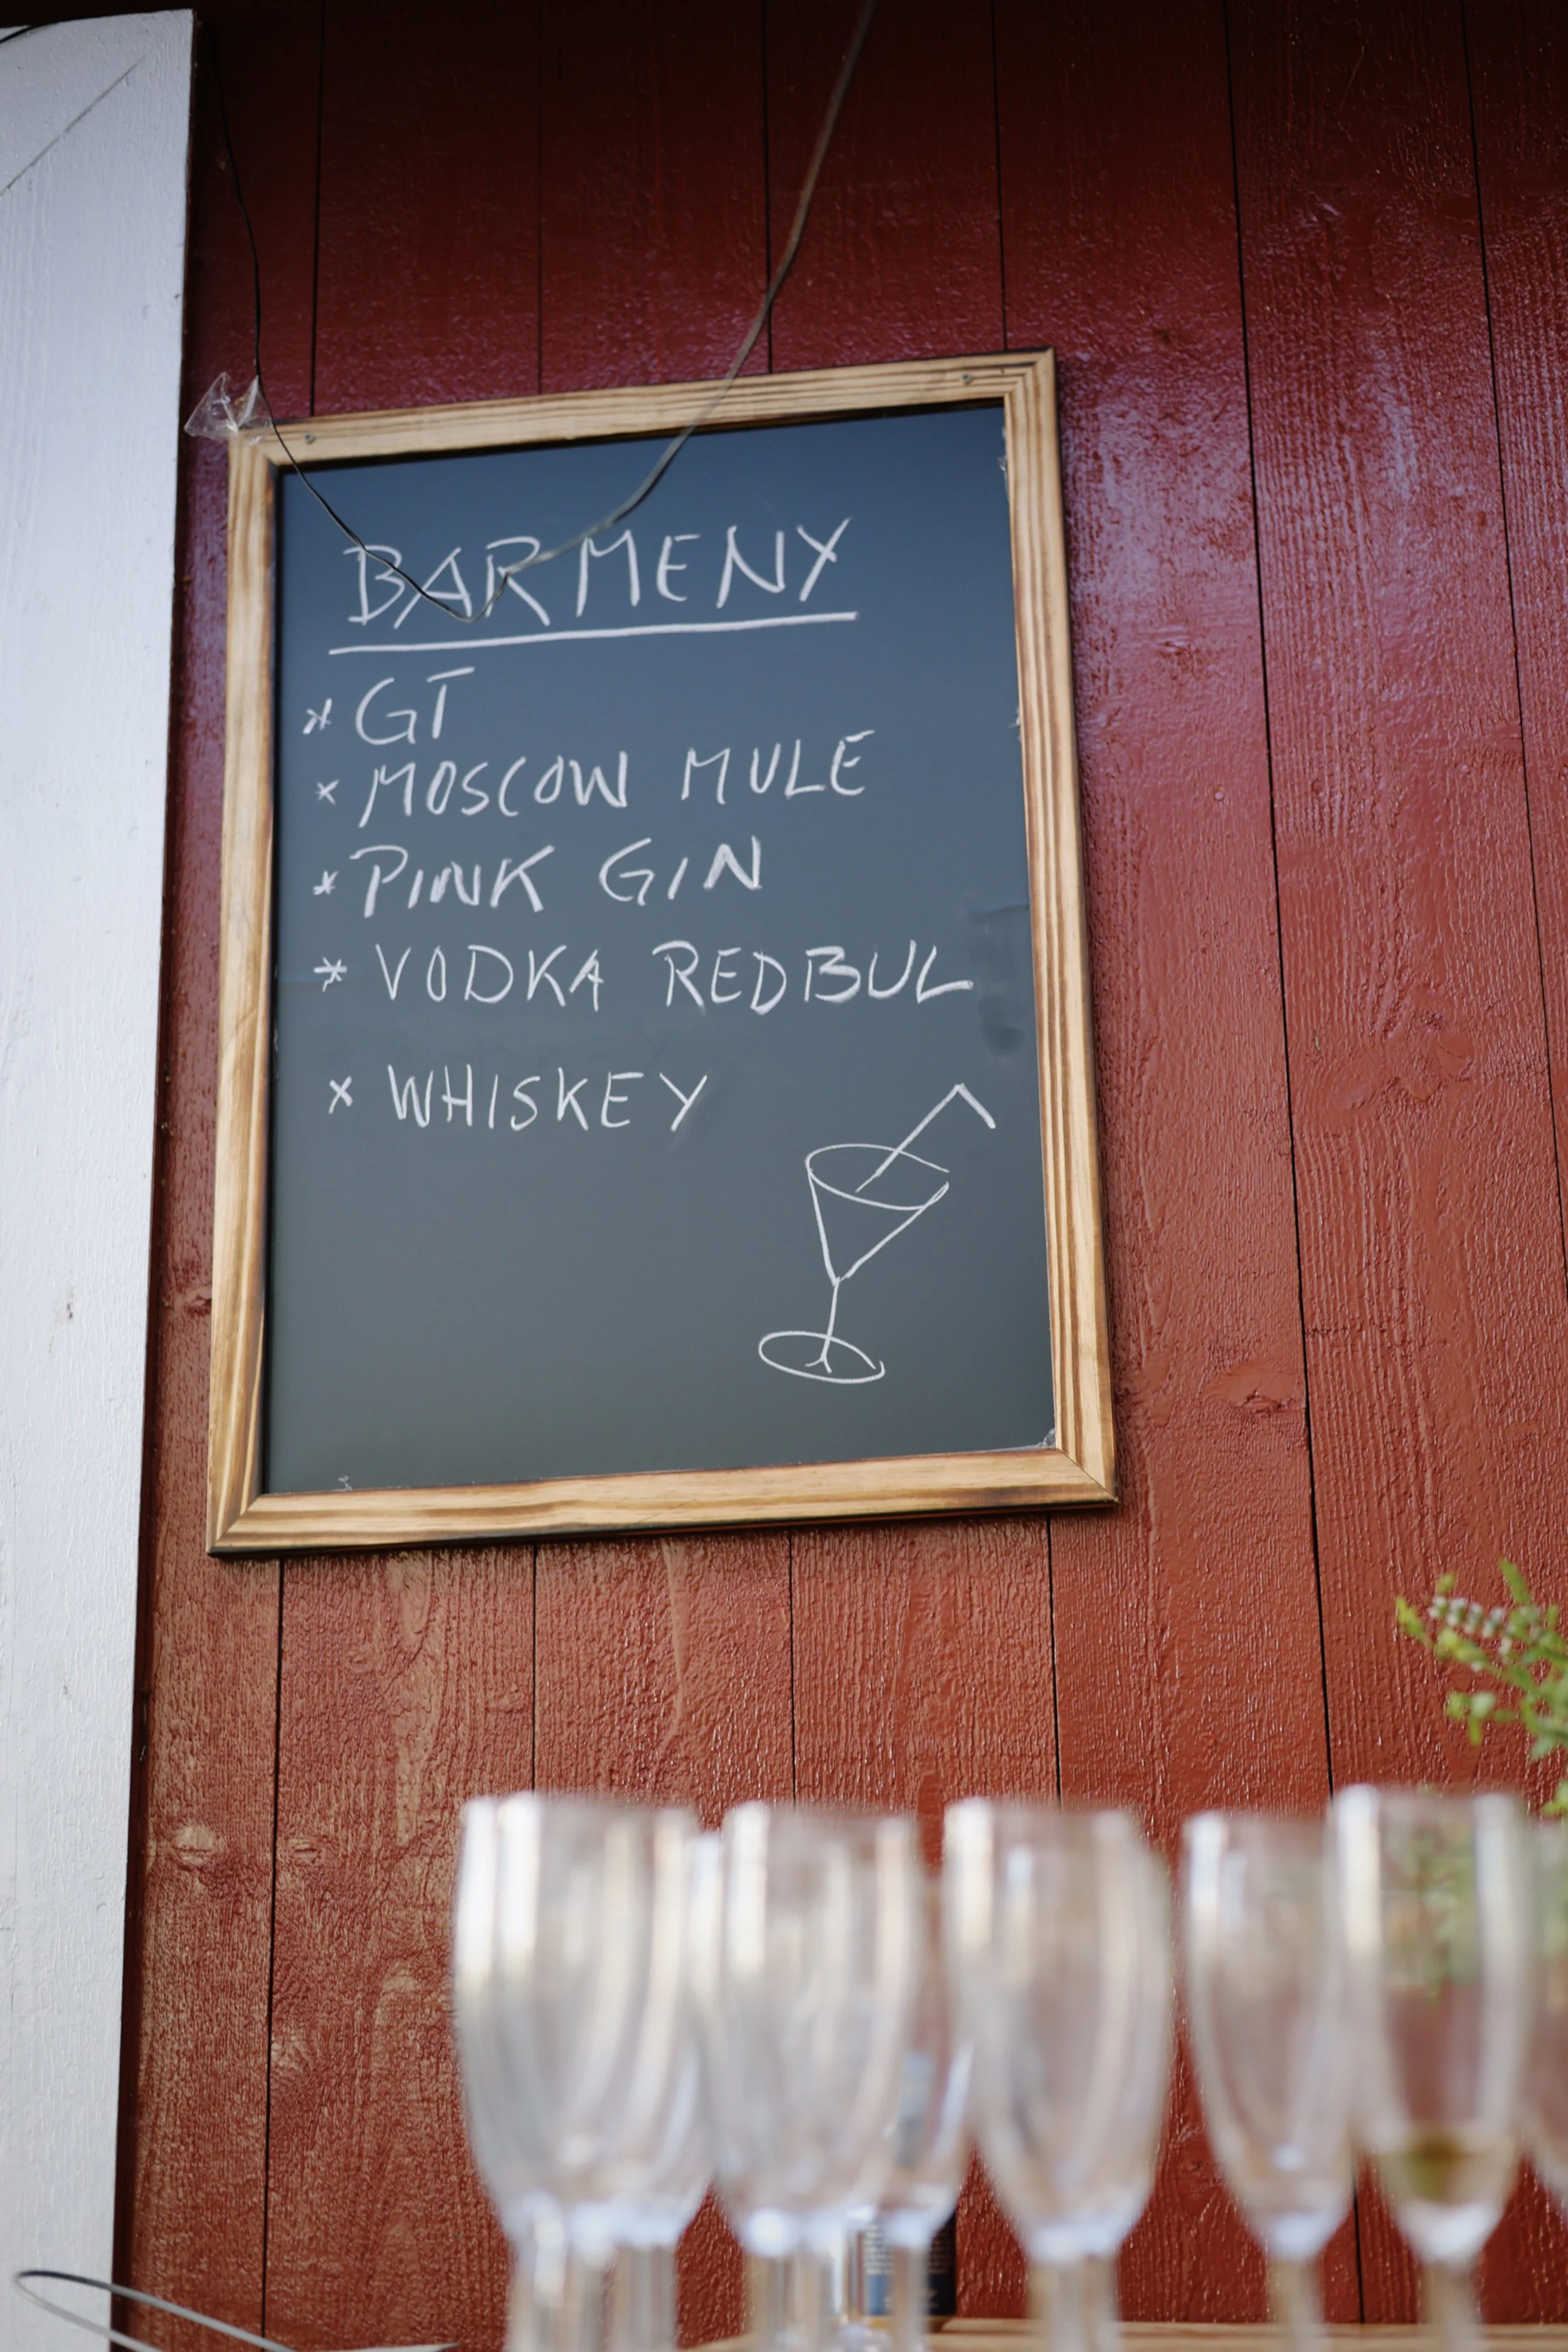 BARMENY
* GT
* MOSCOW MULE
* PINK GIN
* VODKA REDBUL
* WHISKEY